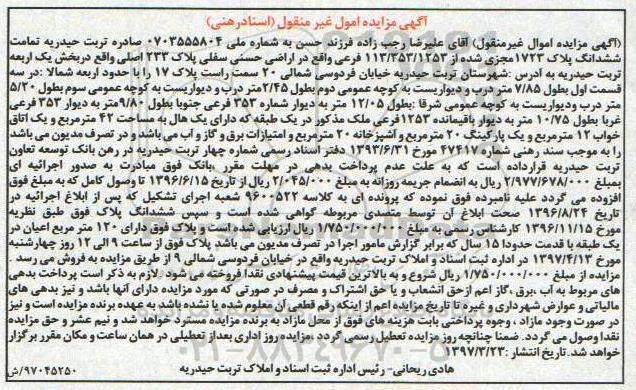 آگهی مزایده اموال غیر منقول (اسنادرهنی)
(آگهی مزایده اموال غیرمنقول) آقای علیرضا رجب زاده فرزند حسن به شماره ملی ۰۷۰۳۵۵۵۸۰۴ صادره تربت حیدریه تمامت
ششدانگ پلاک ۱۷۲۳مجزی شده از ۱۱۳/۳۵۳/۱۲۵۳ فرعی واقع در اراضی حسنی سفلی پلاک ۲۳۳ اصلی واقع دربخش یک اربعه
تربت حیدریه به آدرس :شهرستان تربت حیدریه خیابان فردوسی شمالی ۲۰ سمت راست پلاک ۱۷ را با حدود اربعه شمالا :در سه
قسمت اول بطول ۷/۸۵ متر درب و دیواریست به کوچه عمومی دوم بطول ۲/۴۵متر درب و دیواریست به کوچه عمومی سوم بطول ۵/۲۰
متر درب ودیواریست به کوچه عمومی شرقا :بطول ۱۲/۰۵ متر به دیوار شماره ۳۵۳ فرعی جنوبا بطول ۹/۸۰متر به دیوار ۳۵۳ فرعی
غربا بطول ۱۰/۷۵ متر به دیوار باقیمانده ۱۲۵۳فرعی ملک مذکور در یک طبقه که دارای یک هال به مساحت ۴۲ مترمربع و یک اتاق
خواب ۱۲ مترمربع و یک پارکینگ ۲۰ مترمربع و آشپزخانه ۲۰ مترمربع و امتیازات برق و گاز و آب می باشد و در تصرف مدیون می باشد
را به موجب سند رهنی شماره ۴۷۴۱۷ مورخ ۱۳۹۳/۶/۳۱ دفتر اسناد رسمی شماره چهار تربت حیدریه در رهن بانک توسعه تعاون
تربت حیدریه قرارداده است که به علت عدم پرداخت بدهی در مهلت مقرر بانک فوق مبادرت به صدور اجرائیه ای
بمبلغ ۲/۹۷۷/۶۷۸/۰۰۰ ریال به انضمام جریمه روزانه به مبلغ ۲/۰۴۵/۰۰۰ ریال از تاریخ ۱۳۹۶/۶/۱۵ تا وصول کامل که به مبلغ فوق
افزوده می گردد علیه نامبرده فوق نموده که پرونده ای به کلاسه ۹۶۰۰۵۲۲ شعبه اجرای تشکیل که پس از ابلاغ اجرائیه در
تاریخ ۱۳۹۶/۸/۲۴ صحت ابلاغ آن توسط متصدی مربوطه گواهی شده است و سپس ششدانگ پلاک فوق طبق نظریه
مورخ ۱۳۹۶/۱۱/۱۵ کارشناس رسمی به مبلغ ۱/۷۵۰/۰۰۰/۰۰۰ ریال ارزیابی شده است و پلاک فوق دارای ۱۲۰ متر مربع اعیان در
یک طبقه با قدمت حدودا ۱۵ سال که برابر گزارش مامور اجرا در تصرف مدیون می باشد پلاک فوق از ساعت ۹ الی ۱۲ روز چهارشنبه
مورخ ۱۳۹۷/۴/۱۳ در اداره ثبت اسناد و املاک تربت حیدریه واقع در خیابان فردوسی شمالی ۹ از طریق مزایده به فروش می رسد .
مزایده از مبلغ ۱/۷۵۰/۰۰۰/۰۰۰ ریال شروع و به بالاترین قیمت پیشنهادی نقدا فروخته می شود .لازم به ذکر است پرداخت بدهی
های مربوط به آب ،برق ،گاز اعم ازحق انشعاب و یا حق اشتراک و مصرف در صورتی که مورد مزایده دارای آنها باشد و نیز بدهی های
مالیاتی و عوارض شهرداری و غیره تا تاریخ مزایده اعم از اینکه رقم قطعی آن معلوم شده یا نشده باشد به عهده برنده مزایده است و نیز
در صورت وجود مازاد ، وجوه پرداختی بابت هزینه های فوق از محل مازاد به برنده مزایده مسترد خواهد شد و نیم عشر و حق مزایده
نقدا وصول می گردد. ضمنا چنانچه روز مزایده تعطیل رسمی گردد ،مزایده روز اداری بعداز تعطیلی در همان ساعت و مکان مقرر برگزار
خواهد شد. تاریخ انتشار :۱۳۹۷/۳/۲۳
هادی ریحانی- رئیس اداره ثبت اسناد و املاک تربت حیدریه
۹۷۰۴۵۲۵۰/ش